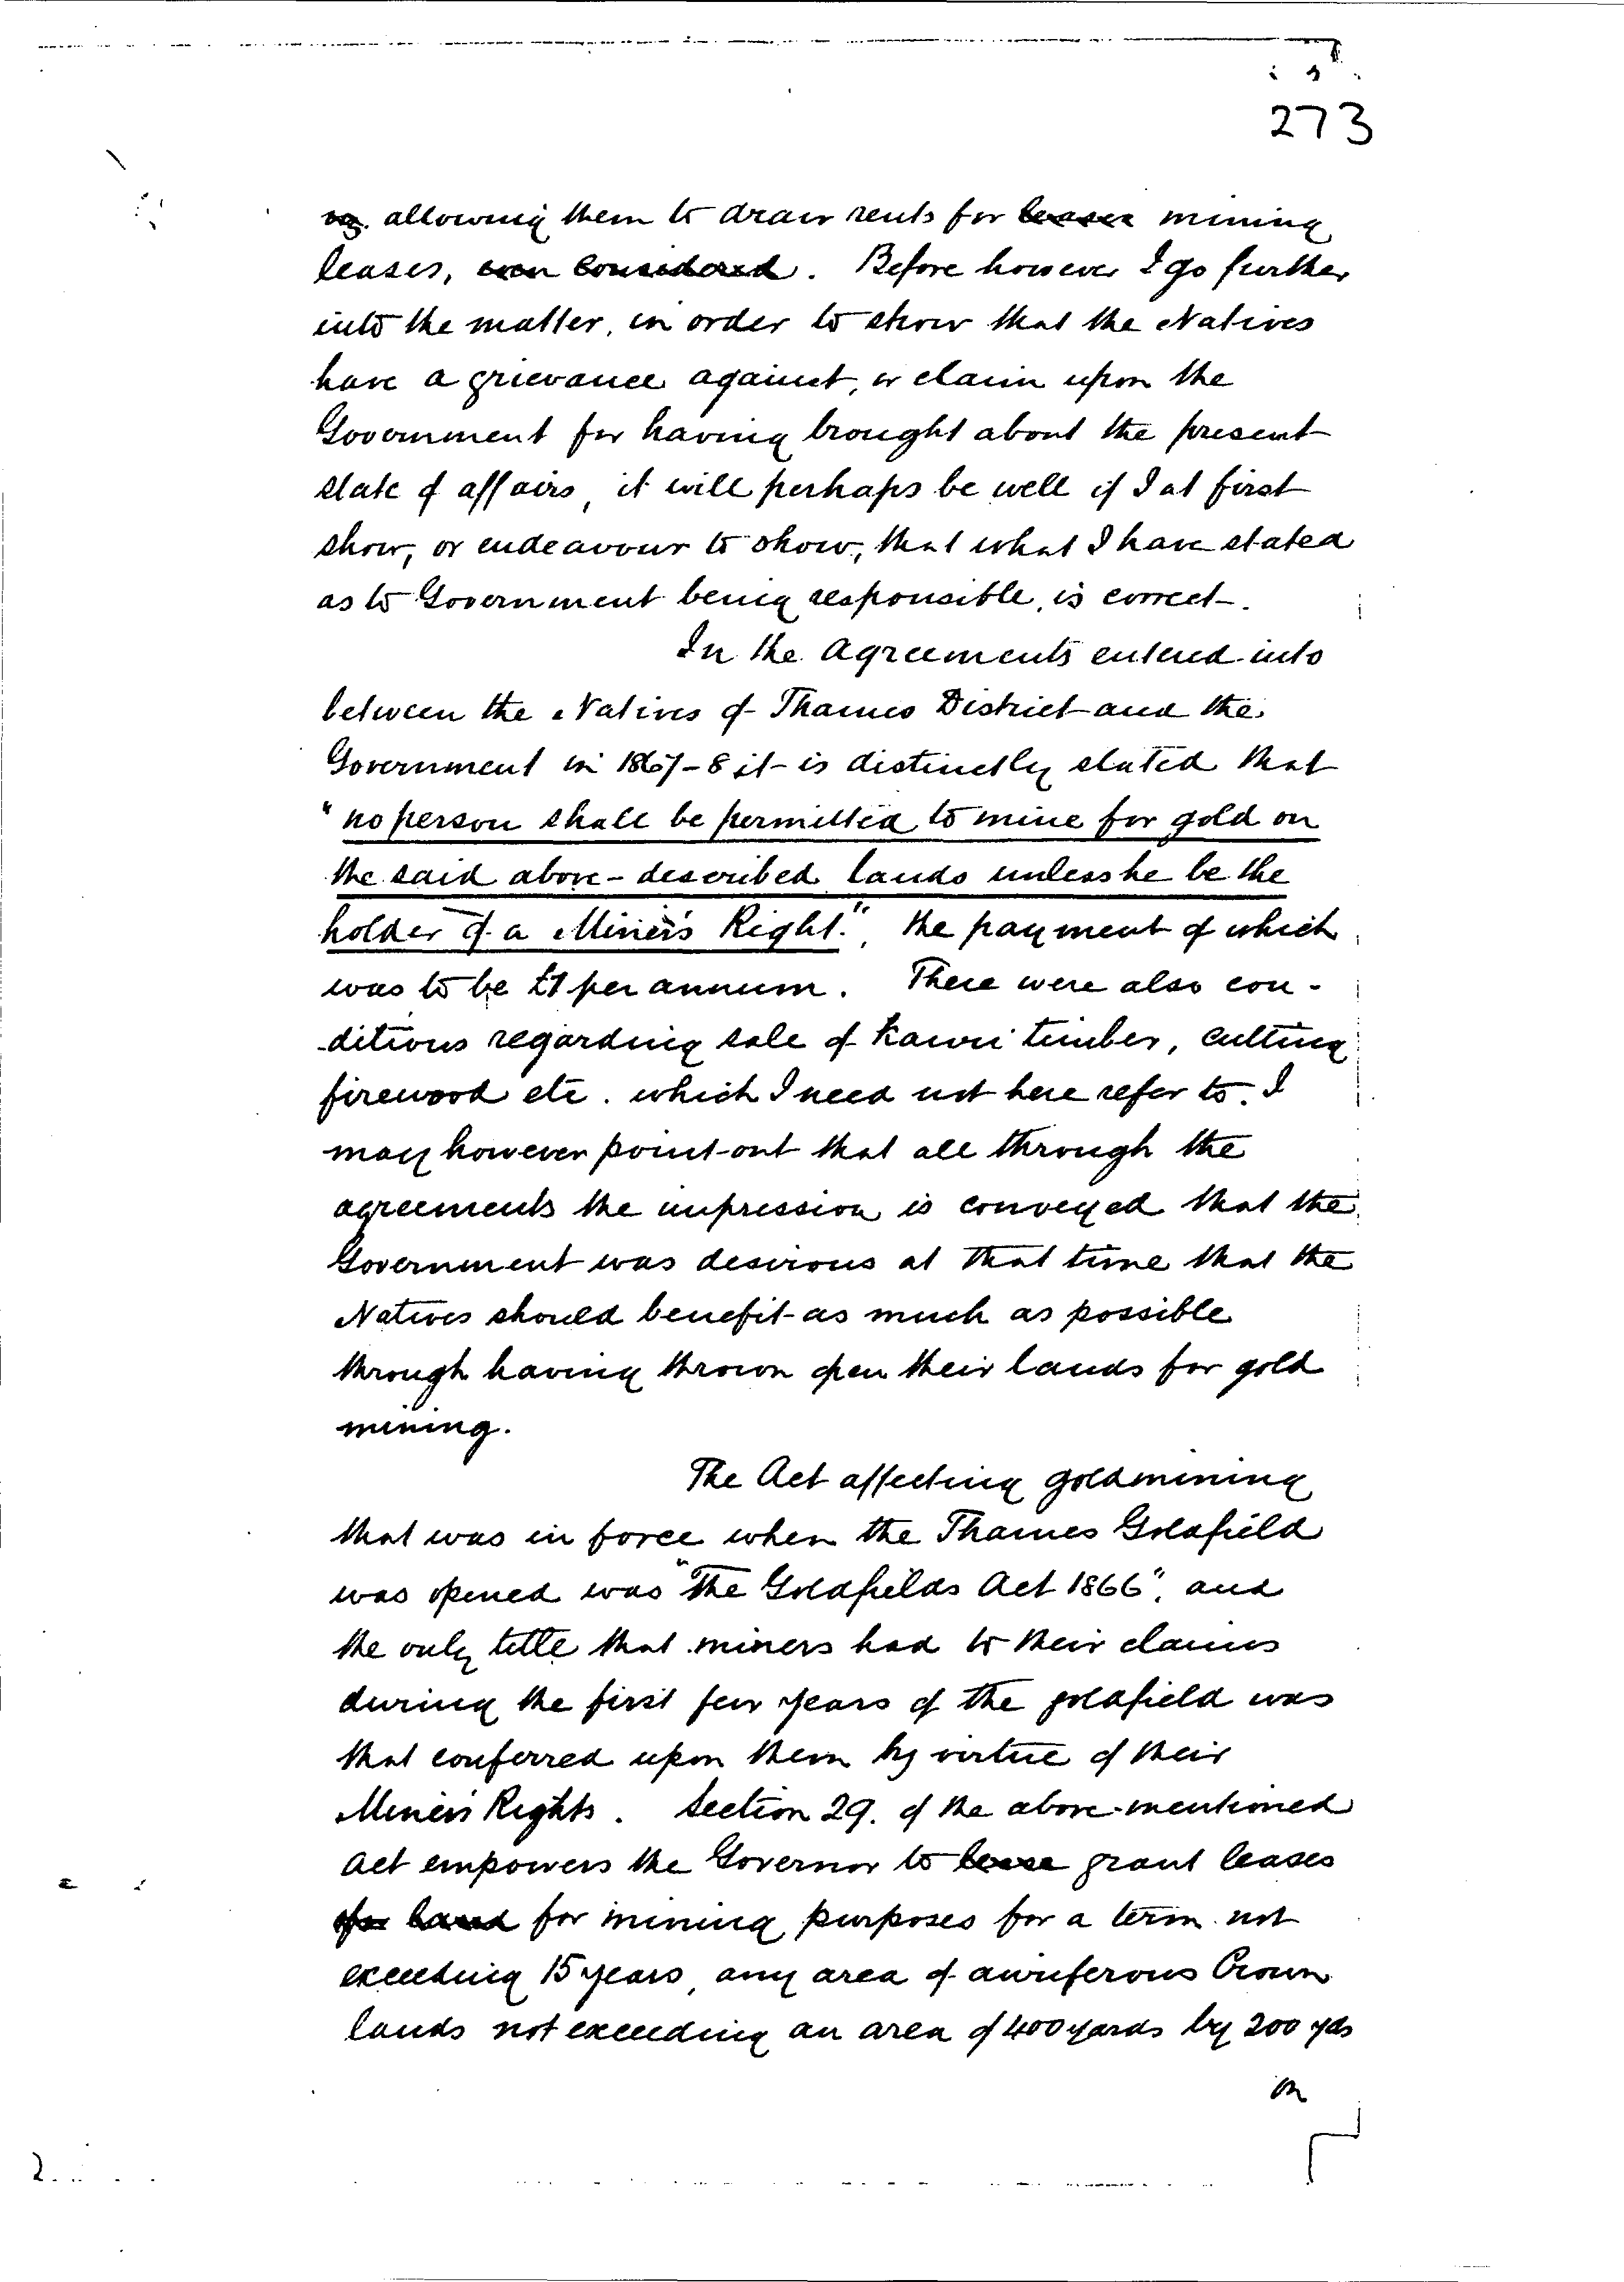 273
allowing them to draw rents for mining
leases, even considered. Before however I go further
into the matter, in order to show that the Natives
have a grievance against, or claim upon the
Government for having brought about the present
state of affairs, it will perhaps be well if I at first
show, or endeavour to show, that what I have stated
as to Government being responsible, is correct.
In the Agreements entered into
between the Natives of Thames District and the
Government in 1867-8 it is distinctly stated that
"no person shall be permitted to mine for gold on
the said above-described lands unless he be the
holder of a Miner's Right.", the payment of which
was to be £1 per annum. There were also con-
-ditions regarding sale of Kauri timber, cutting
firewood etc. which I need not here refer to. I
may however point out that all through the
agreements the impression is conveyed that the
Government was desirous at that time that the
Natives should benefit as much as possible
through having thrown open their lands for gold
mining.
The Act affecting goldmining
that was in force when the Thames Goldfield
was opened was "The Goldfields Act 1866", and
the only title that miners had to their claims
during the first few years of the goldfield was
that conferred upon them by virtue of their
Miner's Rights. Section 29. of the above-mentioned
Act empowers the Governor to lease grant leases
of land for mining purposes for a term not
exceeding 15 years, any area of auriferous Crown
lands not exceeding an area of 400 yards by 200 yds
on
2